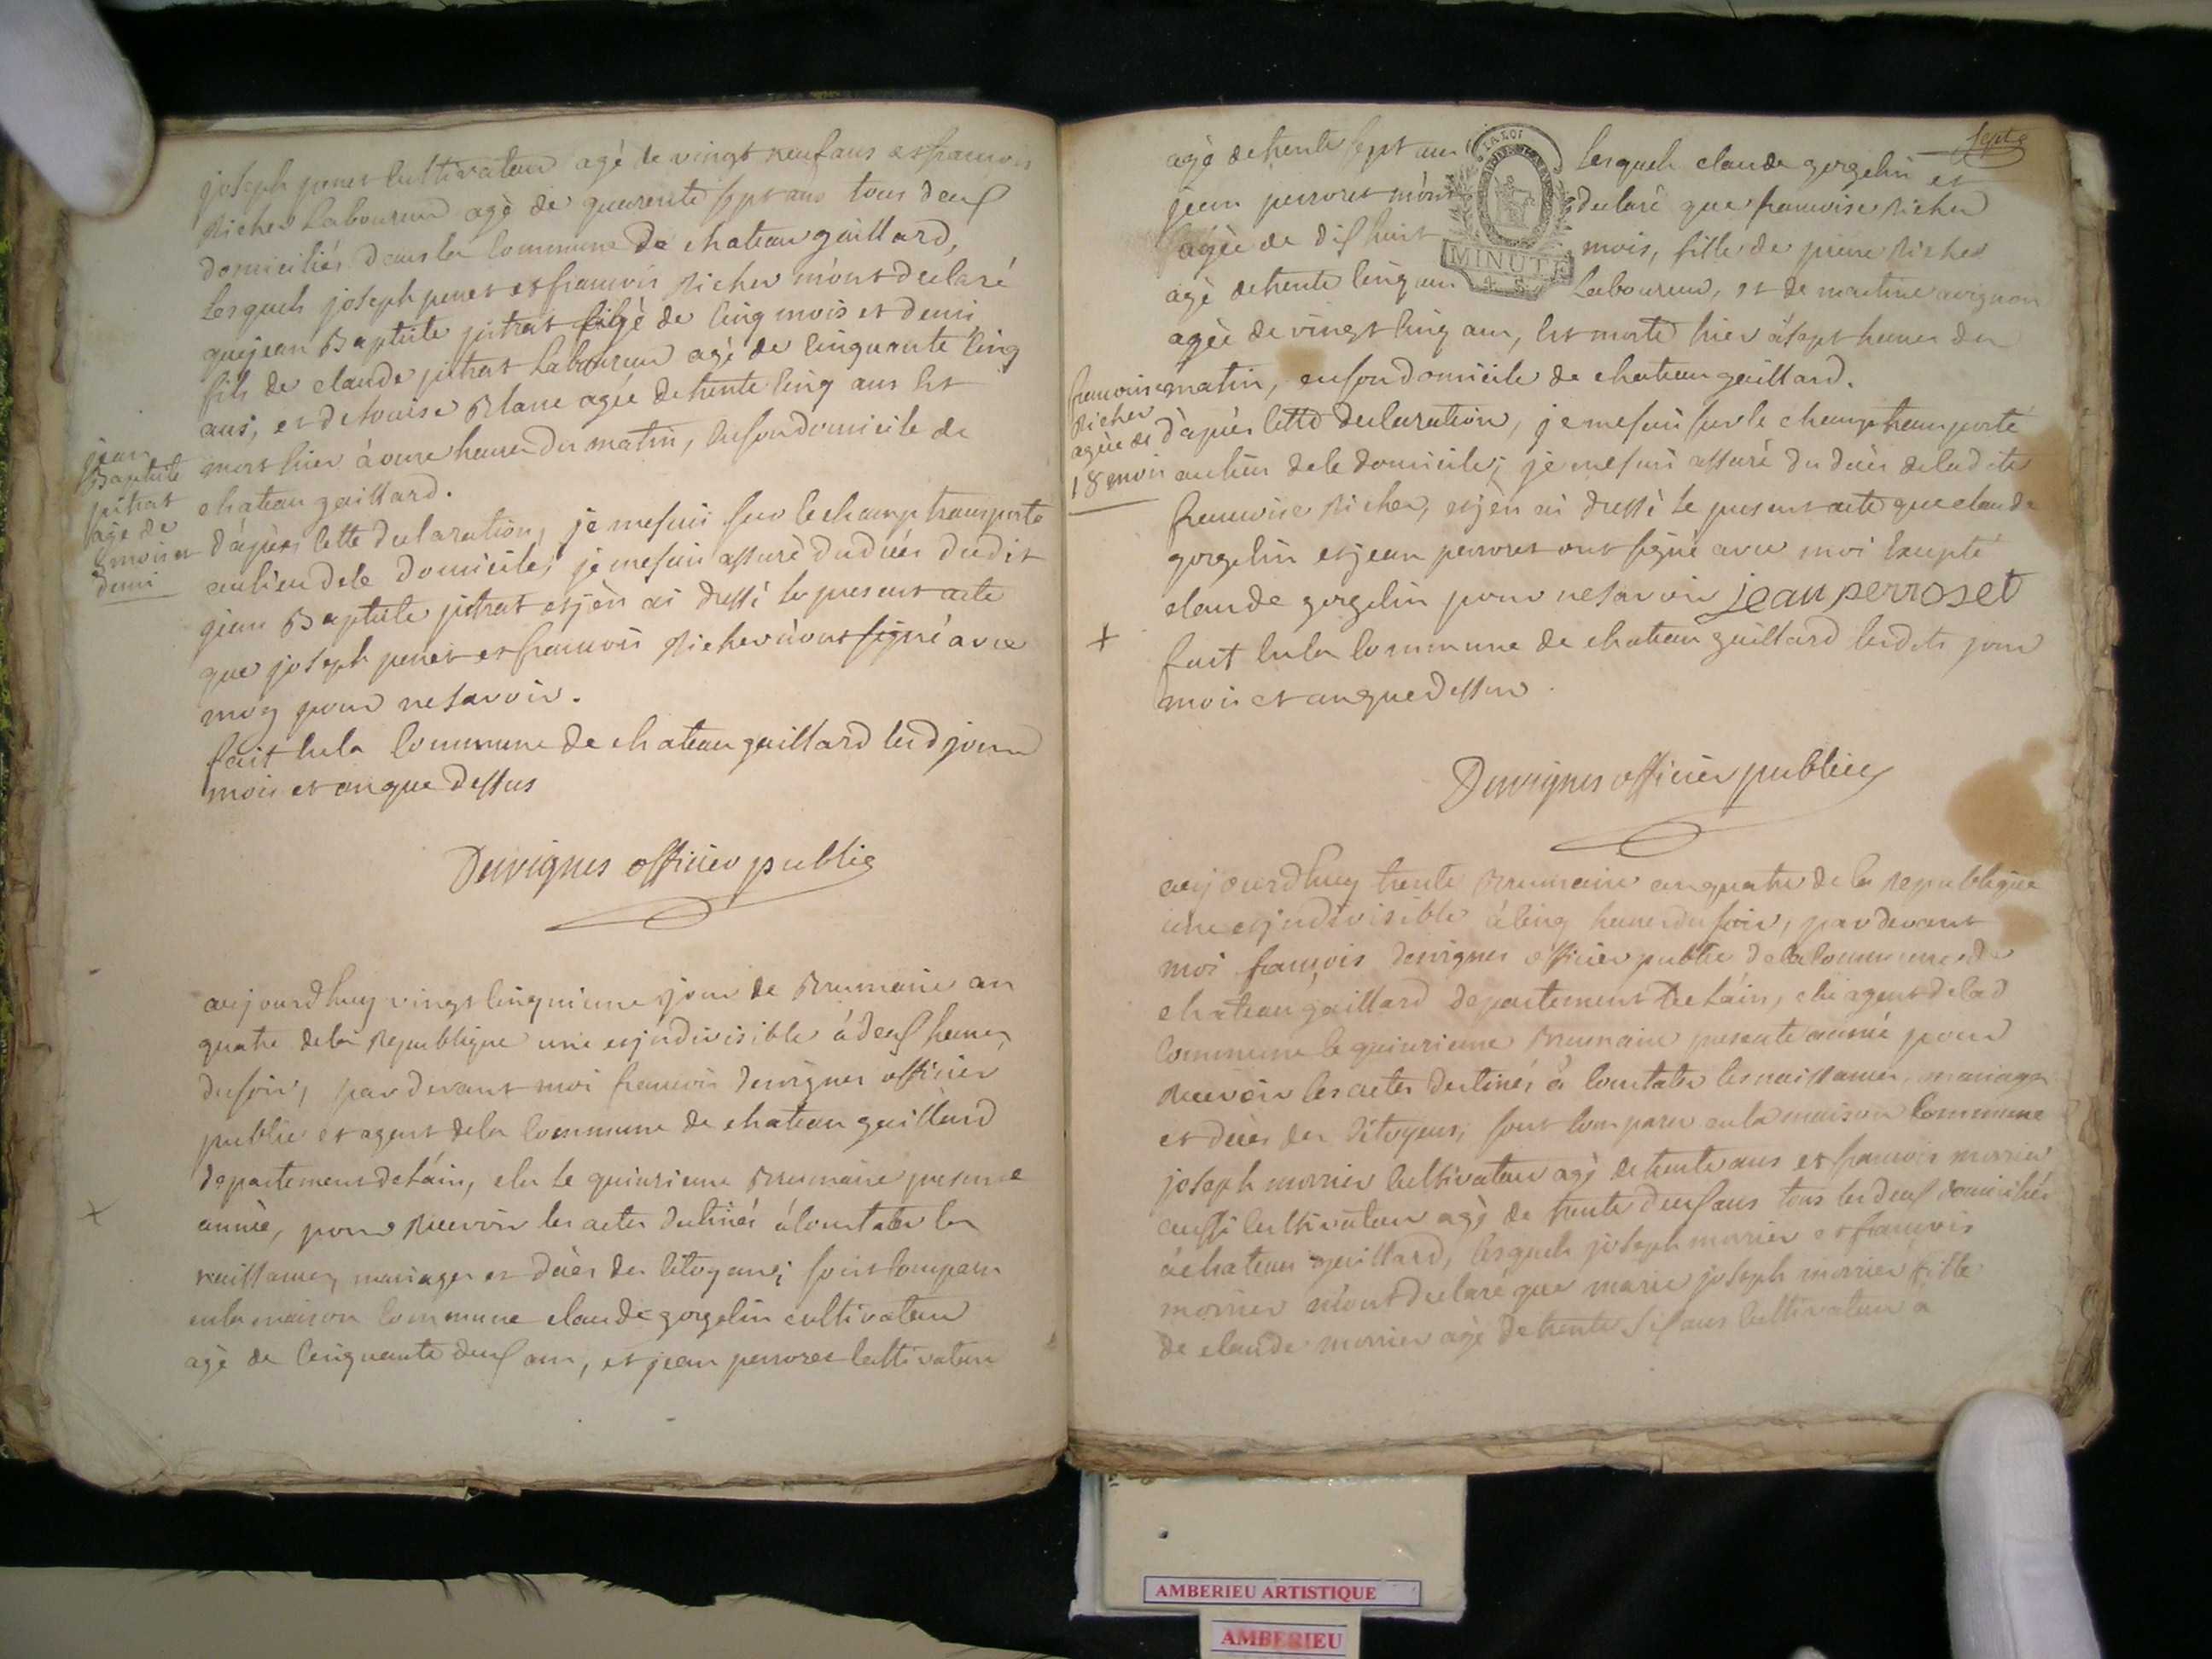 joseph penet cultivateur agé de vingt neuf ans et francois
Richer Laboureur agé de quarente sept ans tous deux
domiciliés dans la commune de chateau gaillard,
Lesquels joseph penet et francois Richer m'ont declaré
que jean Baptiste pitrat agé de cinq mois et demi
fils de claude pitrat Laboureur agé de cinquante cinq
ans, et de Louise Blanc agée de trente cinq ans est
mort hier à onze heures du matin, en son domicile de
chateau gaillard.
jean
Baptiste
pitrat
agé de
5 mois et
demi
d'après cette declaration, je me suis sur le champ transporté
au lieu de le domicile; je me suis assuré du décès dudit
jean Baptiste pitrat et j'en ai dressé le present acte
que joseph penet et francois Richer n'ont signé avec
moy pour ne savoir.
fait en la commune de chateau gaillard lesd jour
mois et an que dessus
Desvignes officier public
aujourdhuy vingt cinquieme jour de Brumaire an
quatre de la Republique une et jndivisible à deux heures
du soir, par devant moi francois desvignes officier
public et agent de la commune de chateau gaillard
departement de l'ain, elu le quinzieme Brumaire presente
année, pour Recevoir les actes destinés à constater les
naissances, mariages et décès des citoyens; sont comparu
en la maison commune claude gorgelin cultivateur
agé de cinquante deux ans, et jean perroset cultivateur
Septe
agé de trente sept ans Lesquels claude gorgelin et
jean perroset m'ont declaré que francoise Richer
agée de dix huit mois, fille de pierre Richer
agé de trente cinq ans Laboureur, et de martine avignon
LA LOI
MINUTE
agée de vingt cinq ans, est morte hier à sept heures du
matin, en son domicile de chateau gaillard.
francoise
Richer
agée de
18 mois
d'après cette declaration, je me suis sur le champ transporté
au lieu de le domicile; je me suis assuré du décès de ladite
francoise Richer, et j'en ai dressé le present acte que claude
gorgelin et jean perroset ont signé avec moi Excepté
claude gorgelin pour ne savoir jean perroset
fait en la commune de chateau gaillard lesdits jour
mois et an que dessus
Desvignes officier public
aujourdhuy trente Brumaire an quatre de la Republique
une et jndivisible à cinq heures du soir, par devant
moi françois desvignes officier public de la commune de
chateau gaillard departement de l'ain, elu agent de lad
commune le quinzieme Brumaire presente année pour
Recevoir les actes destinés à constater les naissances, mariages
et décès des citoyens; sont comparu en la maison commune
joseph morrier cultivateur agé de trente ans et francois morrier
aussi cultivateur agé de trente deux ans tous les deux domiciliés
à chateau gaillard, lesquels joseph morrier et françois
morrier m'ont declaré que marie joseph morrier fille
de claude morrier agé de trente six ans cultivateur à
AMBERIEU ARTISTIQUE
AMBERIEU